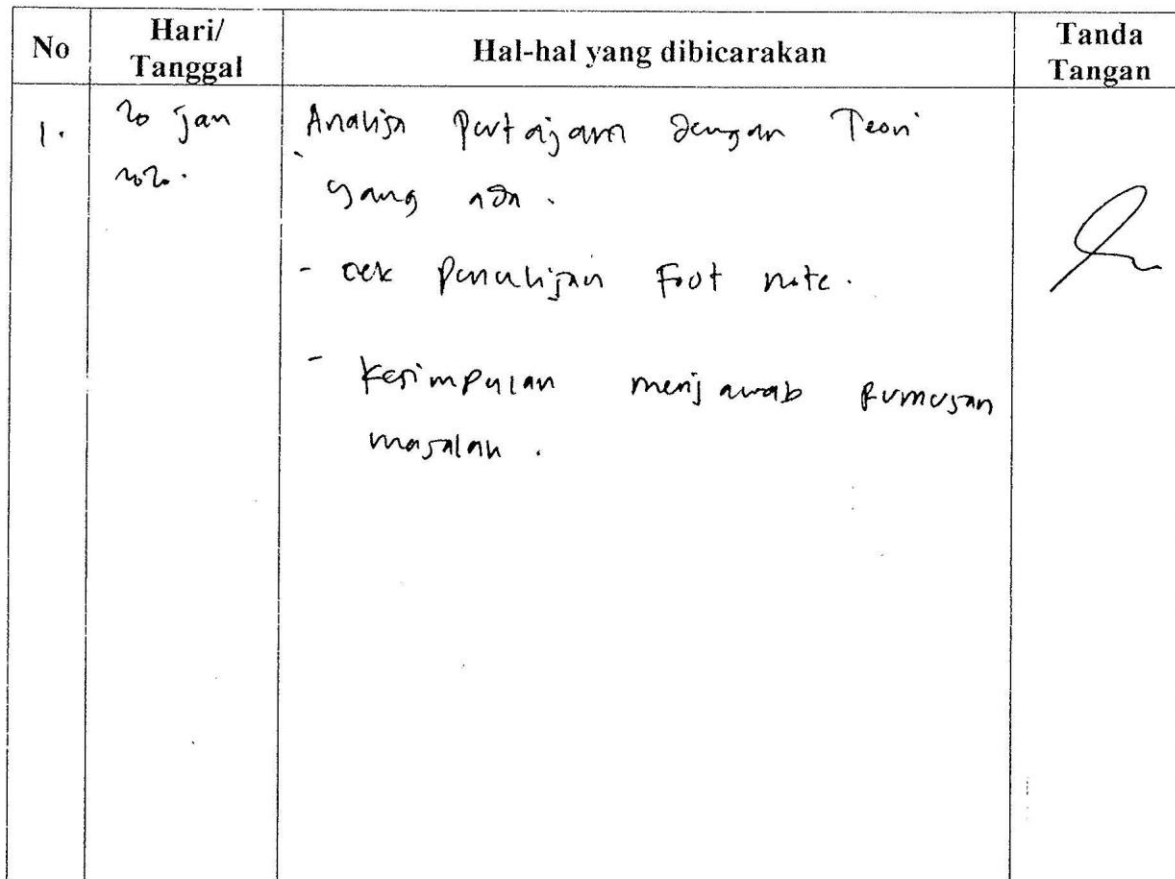 No
Hari/
Tanggal
Hal-hal yang dibicarakan
Tanda
Tangan
1.
20 Jan
2020.
Analisa Pertajam dengan Teori
yang ada.
- cek Penulisan Foot note.
- Kesimpulan menjawab Rumusan
masalah.